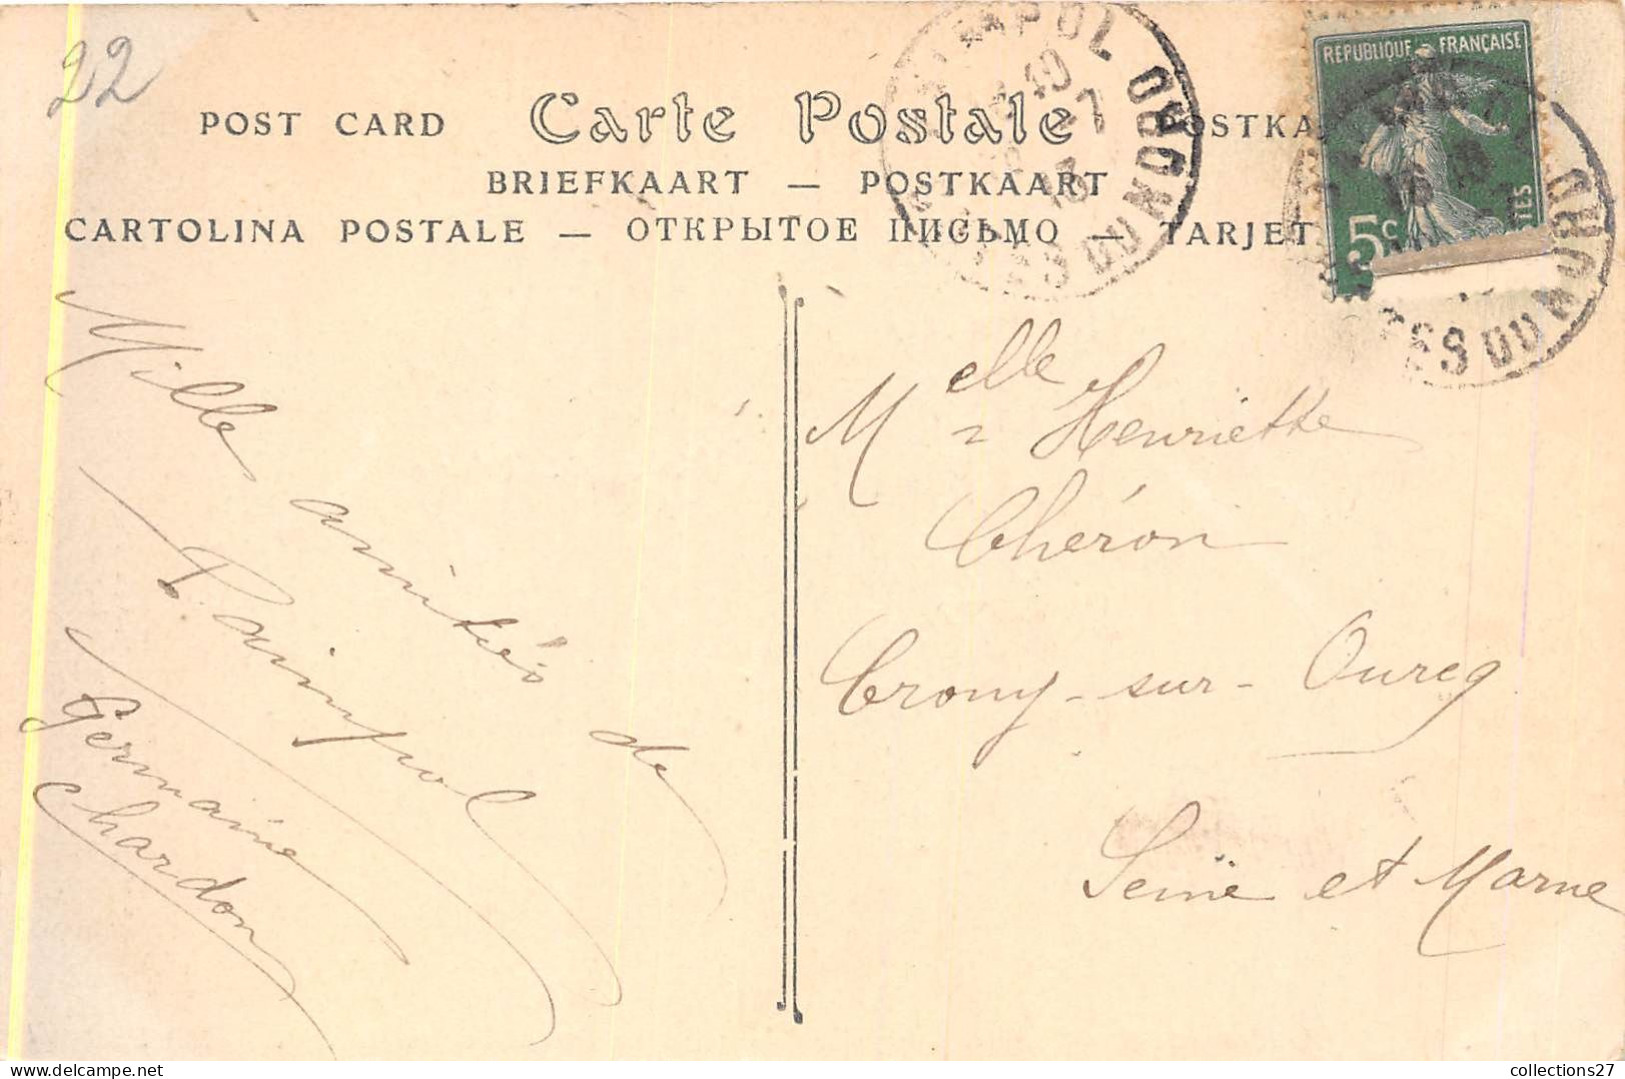 22
POST CARD Carte Postale
BRIEFKAART — POSTKAART
CARTOLINA POSTALE — ОТКРЫТОЕ ПИСЬМО — TARJET
REPUBLIQUE FRANÇAISE
5c
10
DU NORD
DU NORD
Mille amitiés de
Paimpol
Germaine
Chardon
Melle Henriette
Chéron
Crouy-sur-Ourcq
Seine et Marne
collections27